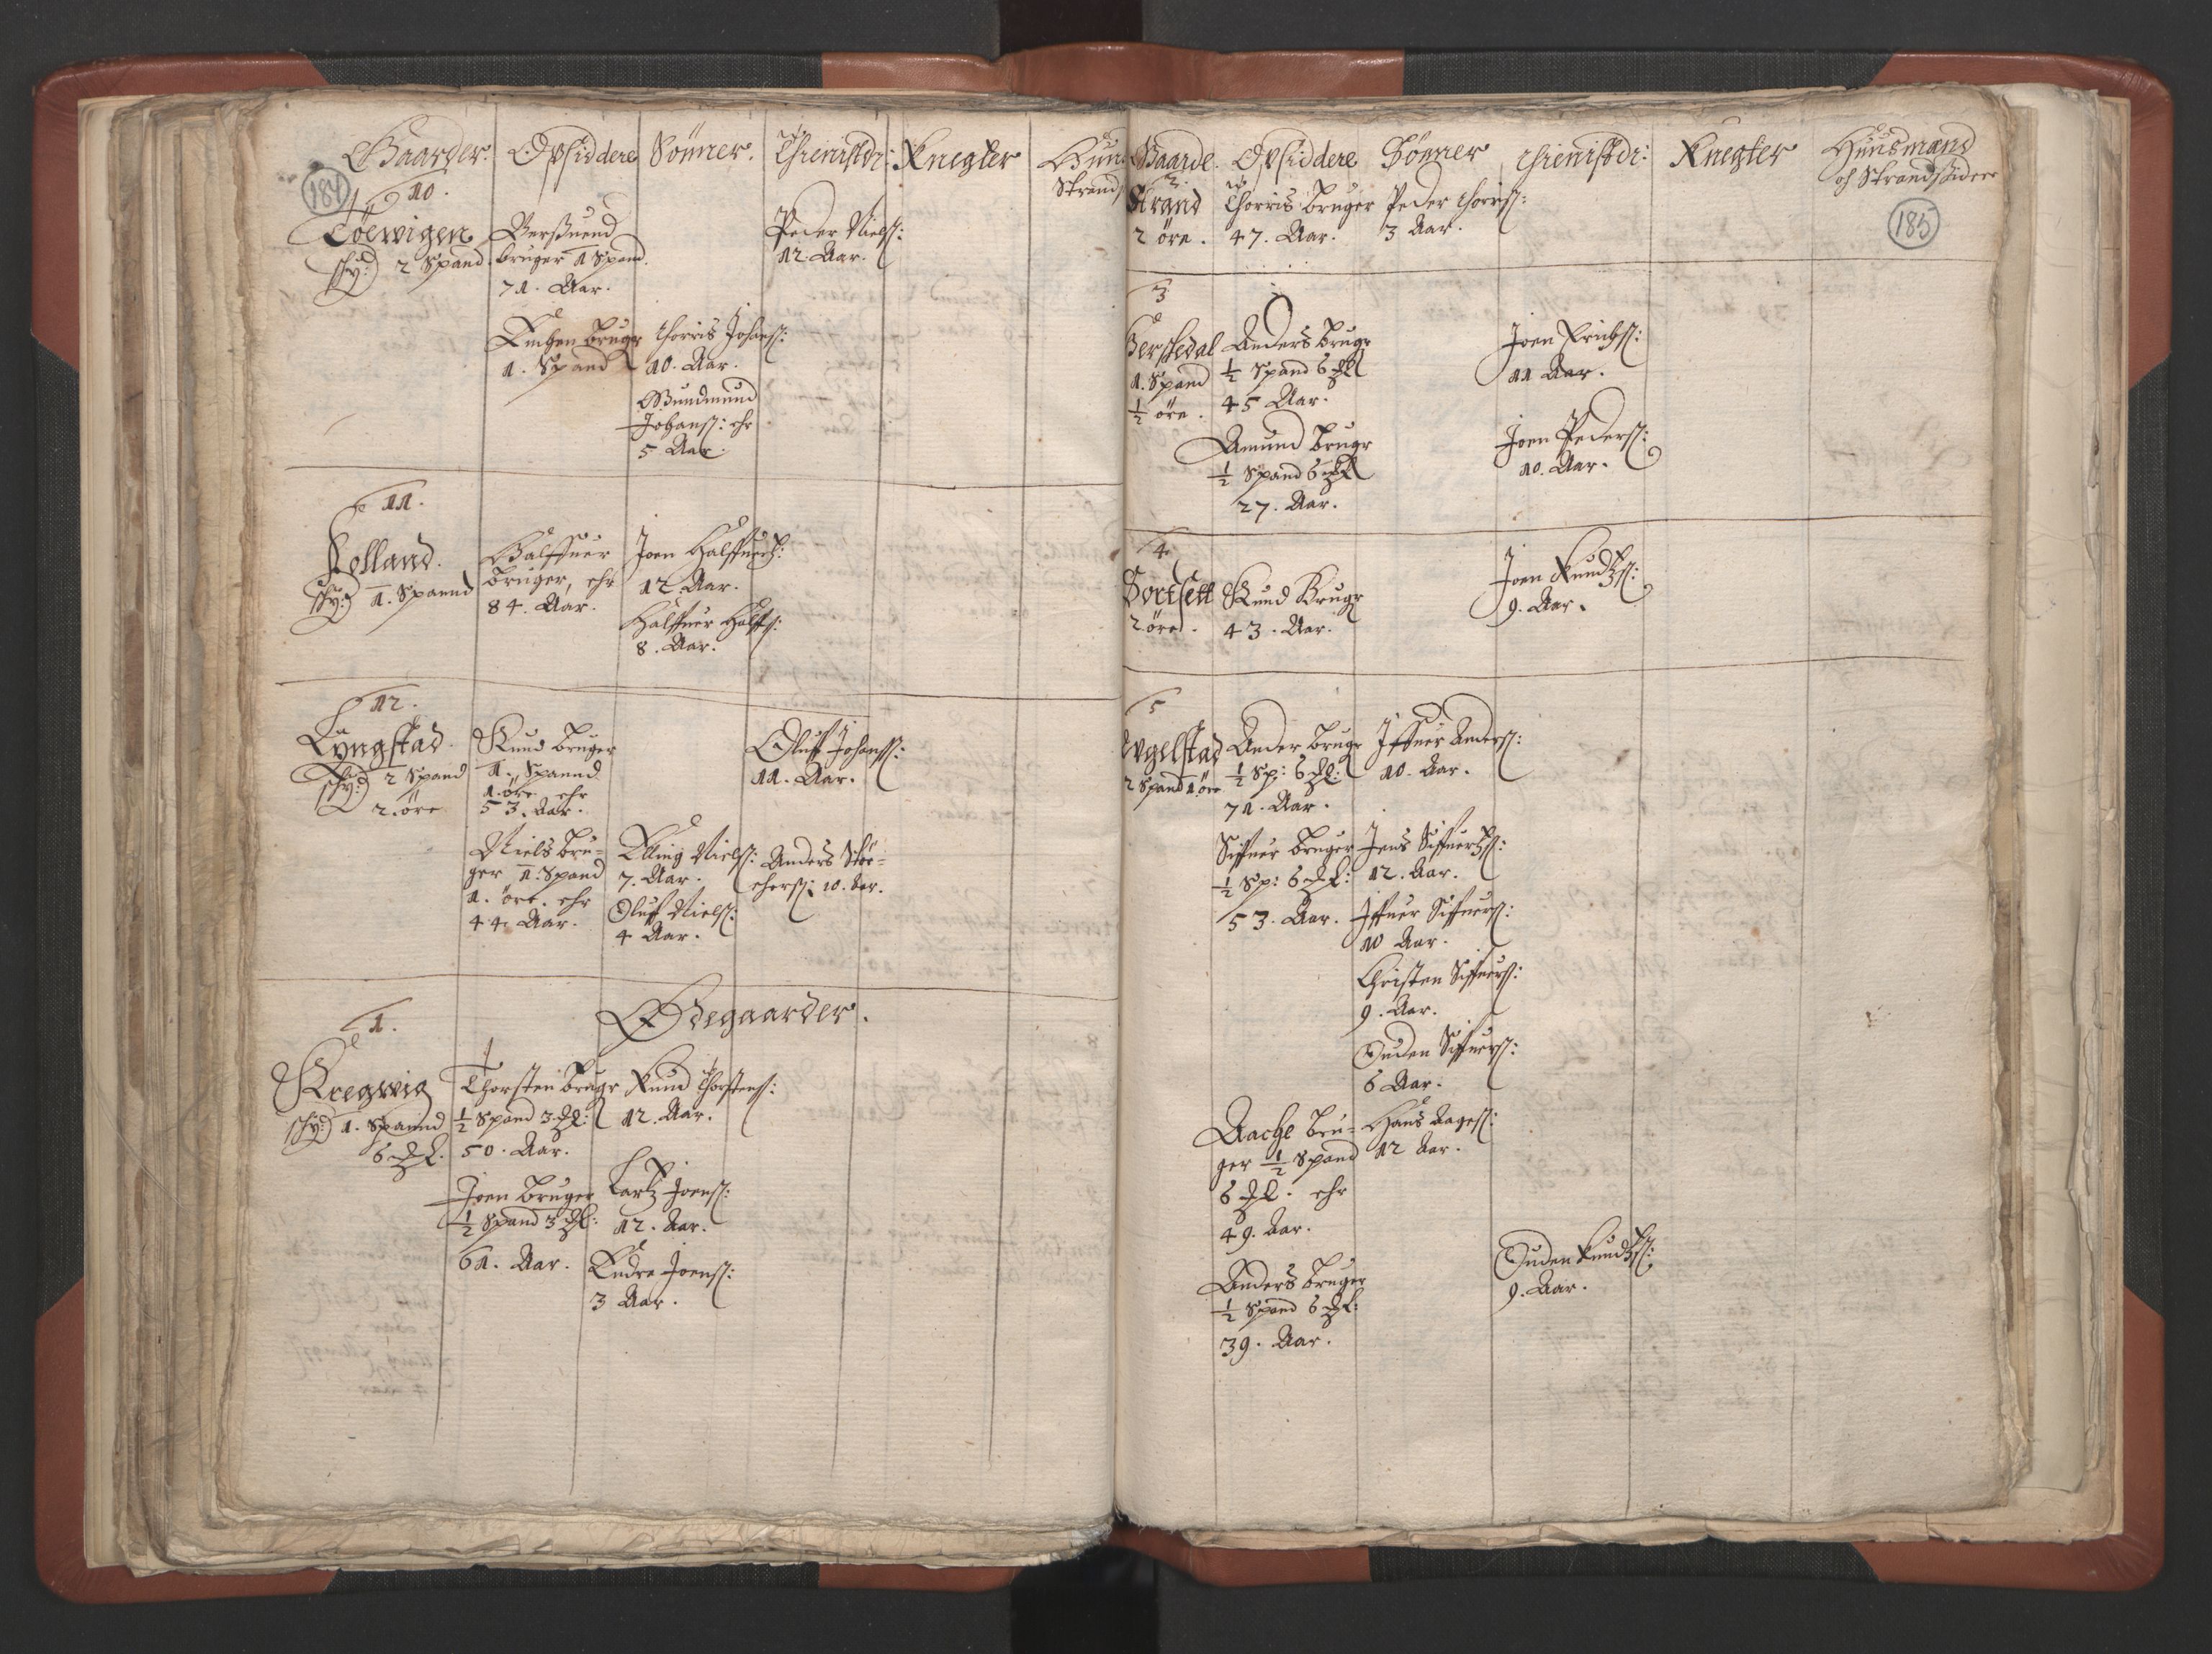 Gaarder. Opsiddere Sönner. Thienistdr: Knegter Huu
Strands
184
10.
Löewigen
schyl: 2 Spand.
Berssuend
bruger 1 Spand.
71. Aar.
Peder Nielss:
12. Aar.
Enchen brugr
1. Spand
Thorris Johanss:
10. Aar.
Gundmund
Johanss: ehr
5 Aar.
11.
Holland.
schyl: 1. Spannd
Halffuer
bruger, ehr
84. Aar.
Joen Halffuerss:
12. Aar.
Halffuer Halffs:
8. Aar.
12.
Lyngstad.
schyl: 2 Spand
2. öre
Knud bruger
1. Spannd
1. öre ehr
53. Aar.
Oluff Johanss:
11. Aar.
Niels bru-
ger 1. Spand
1. öre. ehr
44. Aar.
Elling Nielss:
7. Aar.
Oluff Nielss:
4 Aar.
Anders
10. Aar.
Ødegaarder.
1.
Kregwig
schyl: 1. Spannd
6
Thorsten brugr
1/2 Spand 3
50. Aar.
Knud Thorstenss:
12. Aar.
Joen bruger
1/2 Spand 3
61. Aar.
Lartz Joenss:
12. Aar.
Endre Joenss:
3 Aar.
Gaarde. Opsiddere Sönner Thienistdr: Knegter Huusmænd
och Strandsidere
185
2.
Strand
2 öre.
Thorris bruger
47. Aar.
Peder Thorriss:
3 Aar.
3
Berssedal
1. Spand
1/2 öre.
Anders brugr
1/2 Spand 6
45 Aar.
Joen Erichss:
11 Aar.
Amund brugr
1/2 Spand 6
27. Aar.
Joen Pederss:
10. Aar.
4
Sortsett
2 öre.
Knud Brugr
43. Aar.
Joen Knudtzss:
9. Aar.
5
Ugelstad
2 Spand 1 öre
Ander brugr
1/2 Sp: 6
71. Aar.
Iffuer Anderss:
10. Aar.
Siffuer bruger
1/2 Sp: 6
53. Aar.
Jens Siffuertzss:
12. Aar.
Iffuer Siffuerss:
10 Aar.
Christen Siffuerss:
9. Aar.
Ouden Siffuerss:
6 Aar.
Aache bru-
ger 1/2 Spand
6 ehr
49. Aar.
Hans Aagess:
12 Aar.
Anders bruger
1/2 Spand 6
39. Aar.
Ouden Knudtzss:
9. Aar.